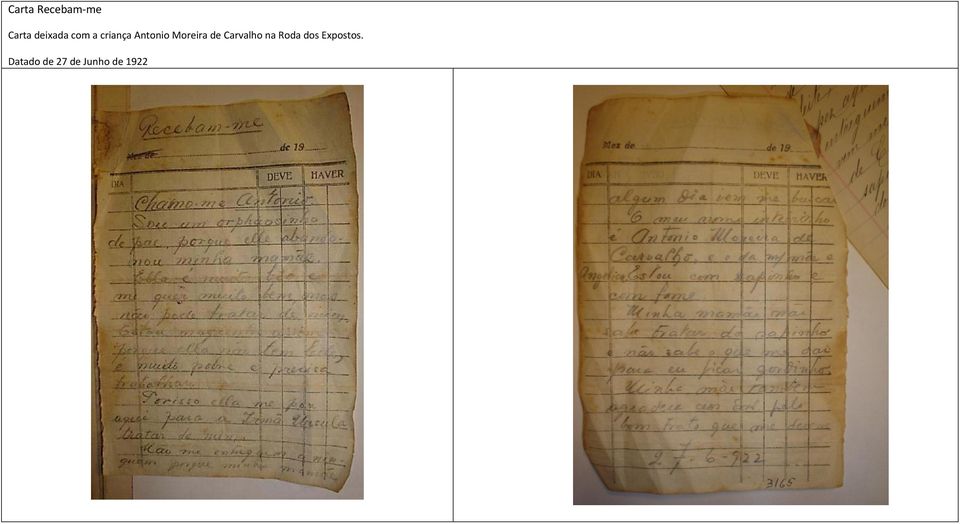 Carta Recebam-me
Carta deixada com a criança Antonio Moreira de Carvalho na Roda dos Expostos.
Datado de 27 de Junho de 1922
Recebam-me
Mez de de 19
DIA DEVE HAVER
Chamo-me Antonio.
Sou um orphaosinho
de pae, porque elle abando-
nou minha mamãe.
Ella é muito bôa e
me quer muito bem mas
não pode tratar de mim.
Estou
porque ella não tem
é muito pobre e precisa
trabalhar.
Porisso ella me poz
aqui para a Irmã Ursula
tratar de mim.
Não me entreguem a nin-
guem porque minha mamãe
Mez de de 19
DIA DEVE HAVER
algum dia vem me buscar
O meu nome inteirinho
é Antonio Moreira de
Carvalho, e o da mamãe e
Angelia Estou com sapinho e
com fome.
Minha mamãe não
sabe tratar do sapinho
e não sabe o que me dar
para eu ficar gordinho
Minha mãe tambem
agradece em pelo
bom trato que me
27-6-922
3165